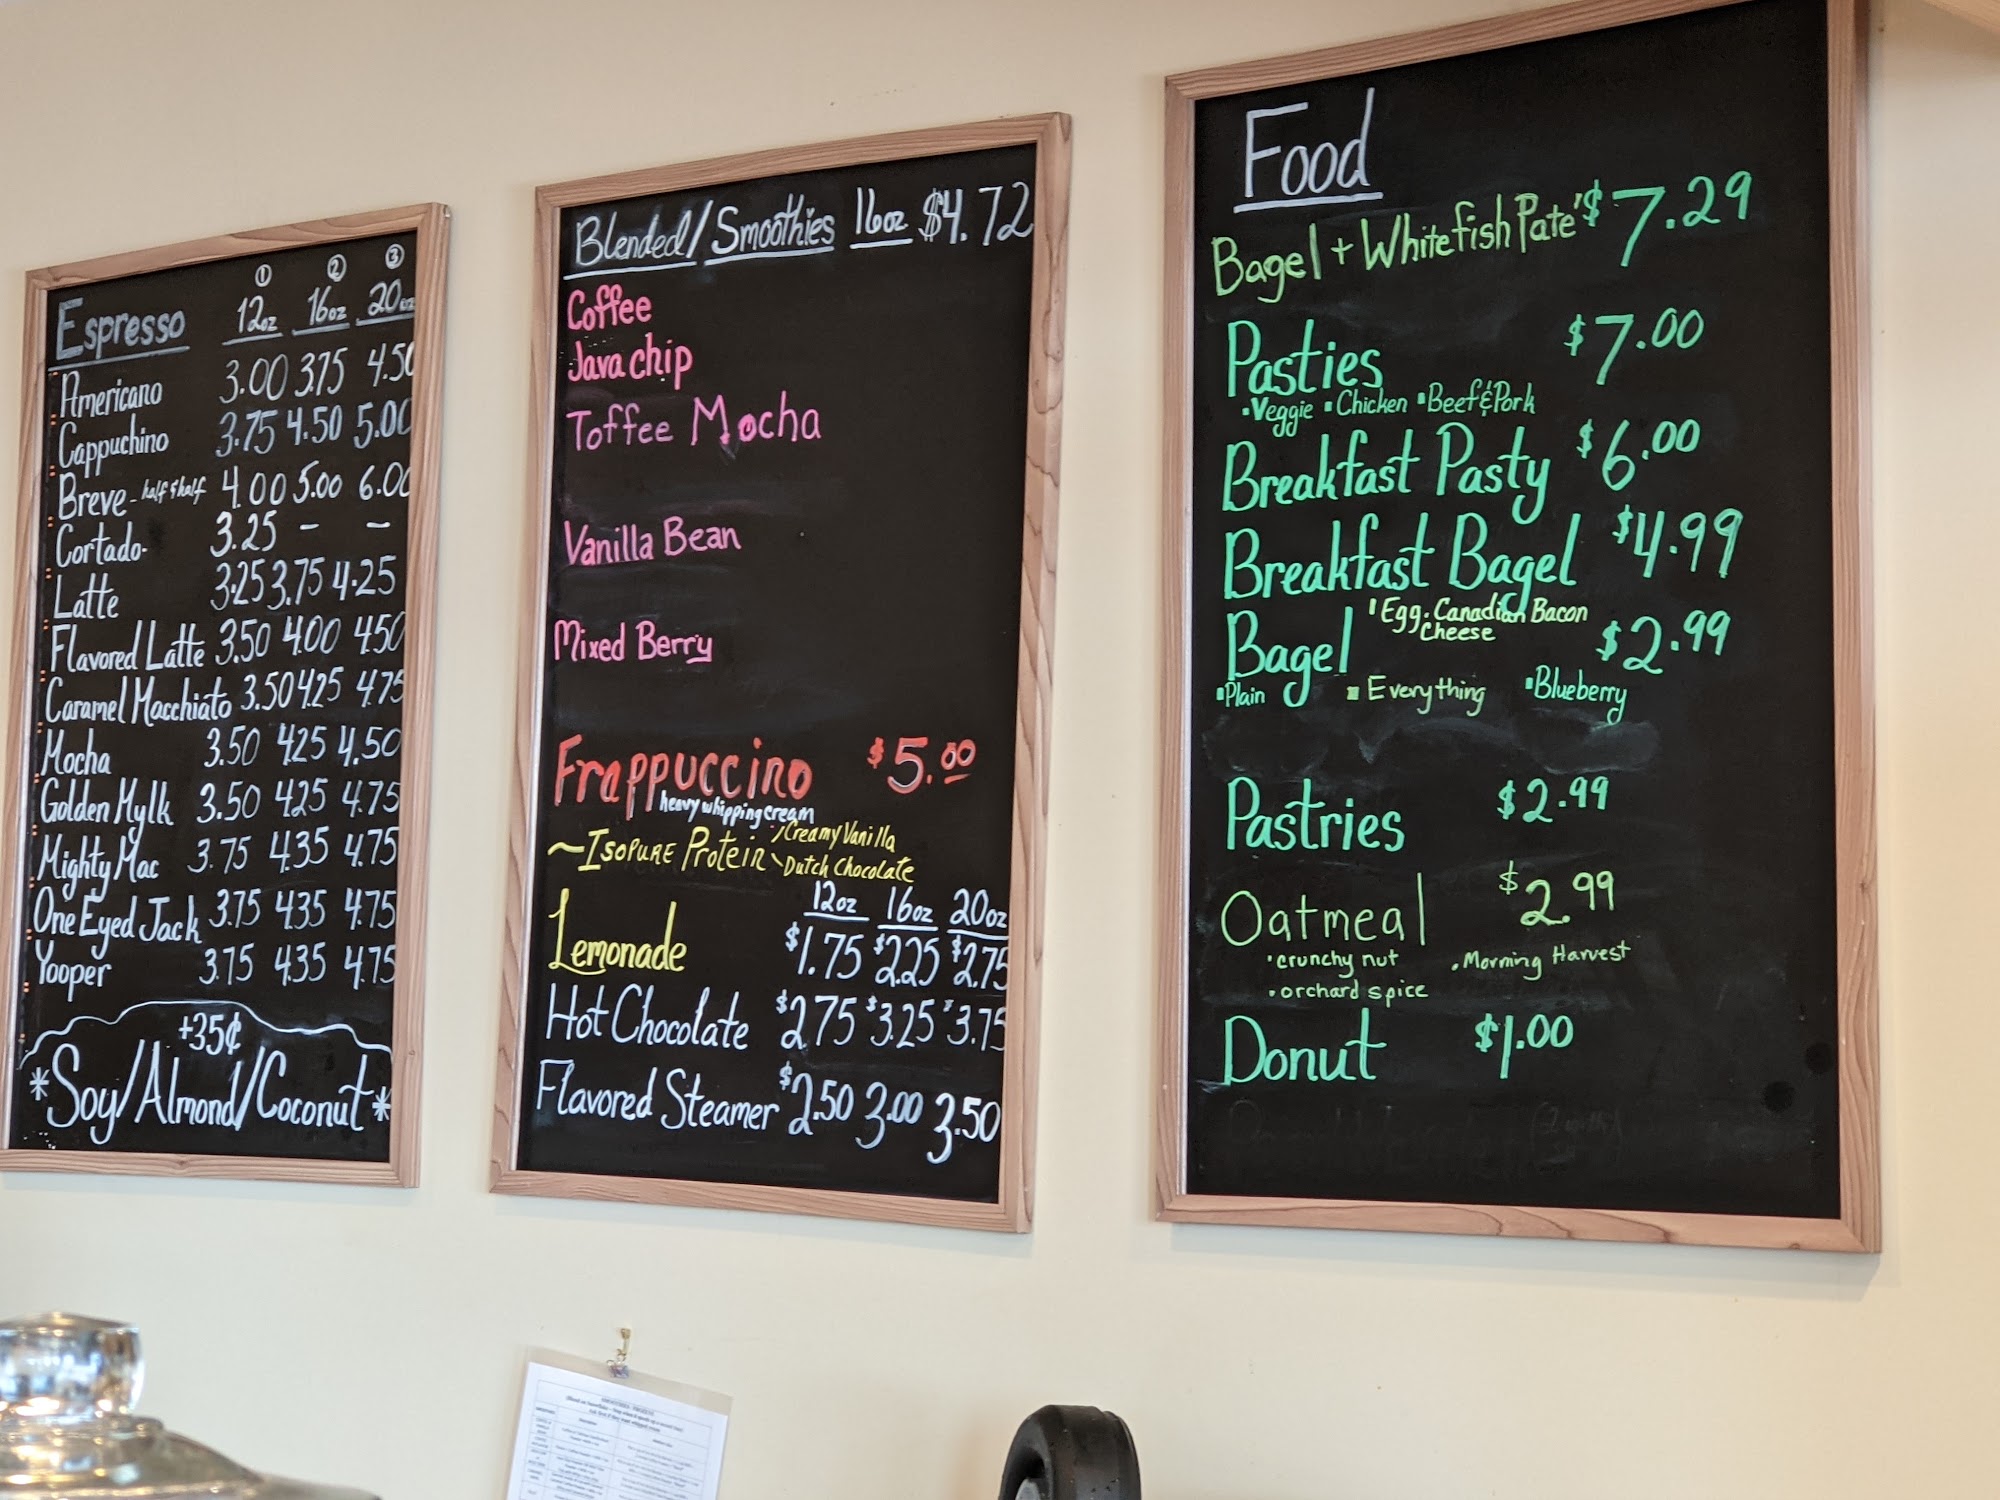 Espresso ① 12oz ② 16oz ③ 20oz
Americano 3.00 3.75 4.50
Cappuchino 3.75 4.50 5.00
Breve - half & half 4.00 5.00 6.00
Cortado - 3.25 – –
Latte 3.25 3.75 4.25
Flavored Latte 3.50 4.00 450
Caramel Macchiato 3.50 4.25 4.75
Mocha 3.50 4.25 4.50
Golden Mylk 3.50 4.25 4.75
Mighty Mac 3.75 4.35 4.75
One Eyed Jack 3.75 4.35 4.75
Yooper 3.75 4.35 4.75
+35¢
*Soy/Almond/Coconut*
Blended/Smoothies 16oz $4.72
Coffee
Java chip
Toffee Mocha
Vanilla Bean
Mixed Berry
Frappuccino $5.00
heavy whipping cream
~Isopure Protein Creamy Vanilla
Dutch Chocolate
12oz 16oz 20oz
Lemonade $1.75 $2.25 $2.75
Hot Chocolate $2.75 $3.25 $3.75
Flavored Steamer $2.50 3.00 3.50
Food
Bagel + Whitefish Pate' $7.29
Pasties $7.00
▪Veggie ▪Chicken ▪Beef & Pork
Breakfast Pasty $6.00
Breakfast Bagel $4.99
Egg. Canadian Bacon
Cheese
Bagel $2.99
▪Plain ▪Everything ▪Blueberry
Pastries $2.99
Oatmeal $2.99
•crunchy nut •Morning Harvest
•orchard spice
Donut $1.00